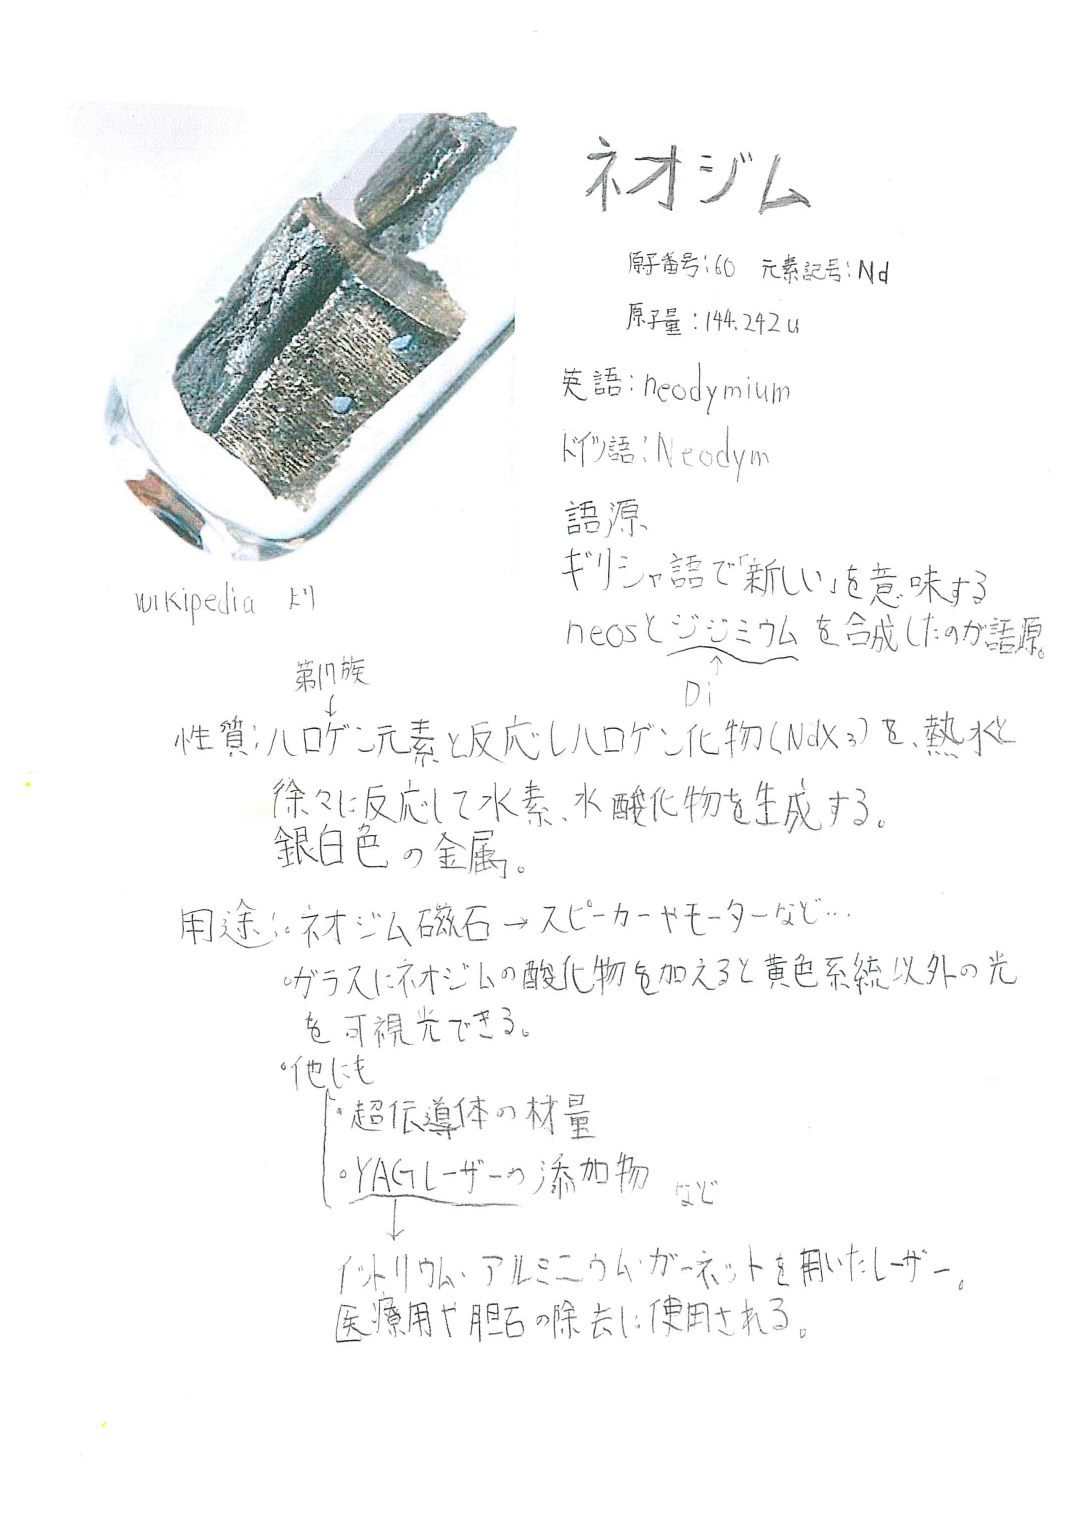 ネオジム
原子番号:60 元素記号:Nd
原子量:144.242u
英語:neodymium
ドイツ語:Neodym
語源
ギリシャ語で「新しい」を意味する
neosとジジミウムを合成したのが語源。
↑
Di
wikipedia より
第17族
↓
性質:ハロゲン元素と反応しハロゲン化物(NdX₃)を、熱水と
徐々に反応して水素、水酸化物を生成する。
銀白色の金属。
用途:・ネオジム磁石→スピーカーやモーターなど…
・ガラスにネオジムの酸化物を加えると黄色系統以外の光
を可視光できる。
・他にも
・超伝導体の材量
・YAGレーザーの添加物 など
↓
イットリウム・アルミニウム・ガーネットを用いたレーザー。
医療用や胆石の除去に使用される。